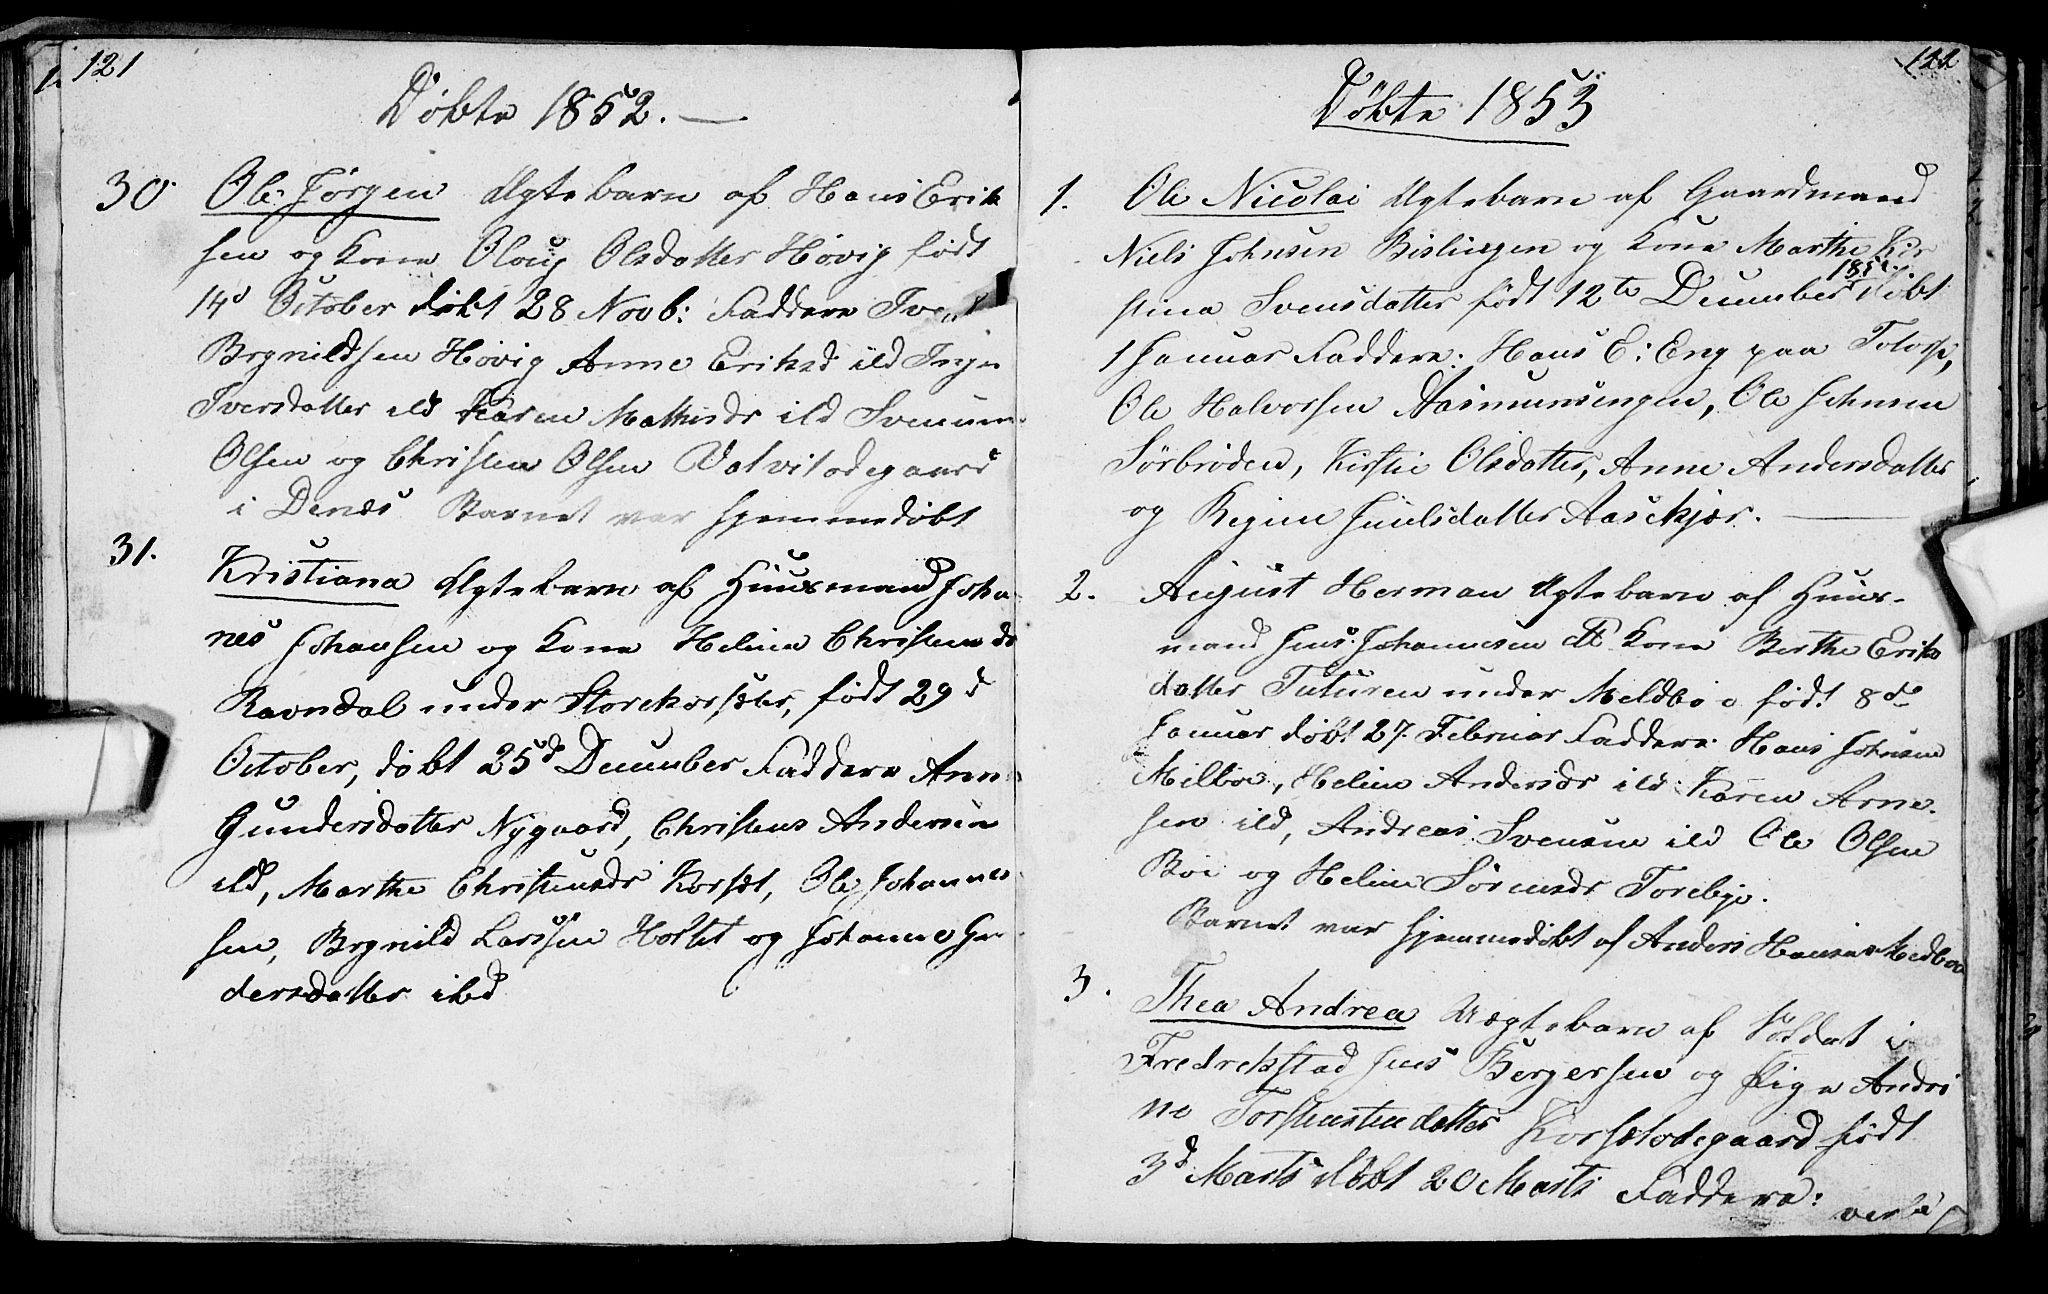 121
Döbte 1852. —
30 Ole Jörgen Ægtebarn af Hans Erik
sen og Kone Oloug Olsdatter Hövig födt
14d October döbt 28 Novb: Faddere Iver
Brynildsen Hövig Anne Eriksd ibd Inge
Iversdatter ibd Karen Mathisdr ibd Svennum
Olsen og Christen Olsen Odegaard
i Denæs Barnet var hjemmedöbt
31. Kristiana Ægtebarn af Huusmand Joha
nes Johansen og Kone Heline Christensdr
Ravndal under Storekorsæter, födt 29d
October, döbt 25d December Faddere Anne
Gundersdatter Nygaard, Christens Andersen
ibd, Marthe Christensdr Korsæt, Ole Johannes
sen, Brynild Larssen Holtet og Johanne Gu
dersdatter ibd
122
Döbte 1853
1. Ole Nicolai Ægtebarn af Gaardmand
Niels Johnsen Bislingen og Kone Marthe Kir
stina Svensdatter födt 12te December 1852. döbt
1 Januar Faddere: Hans E: Eng paa Totorp,
Ole Halvorsen Aasmunsengen, Ole Johnsen
Sörbröden, Kirstie Olsdatter, Anne Andersdatter
og Regine Juulsdatter Aasekjær. —
2. August Herman Ægtebarn af Huus-
mand Jens Johannesen & Kone Berthe Eriks
datter Tuturen under Meldböe födt 8de
Januar döbt 27. Februar Faddere: Hans Johnsen
Milboe, Heline Andersdr ibd Karen Arne-
sen ibd, Andreas Svensen ibd Ole Olsen
Boe og Heline Sörensdr Torebye.
Barnet var hjemmedöbt af Anders Hansen Medboe
3. Thea Andrea Uægtebarn af Soldat i
Fredrekstad Jens Börgersen og Pige Andri
ne Torstenstendatter Korsætodegaard födt
3d Marts döbt 20 Marts Faddere: